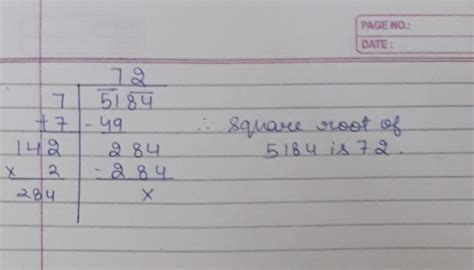 PAGE NO.:
DATE :
72
7 5184
+7 - 49 ∴ Square root of
142 284 5184 is 72.
x 2 - 284
284 x